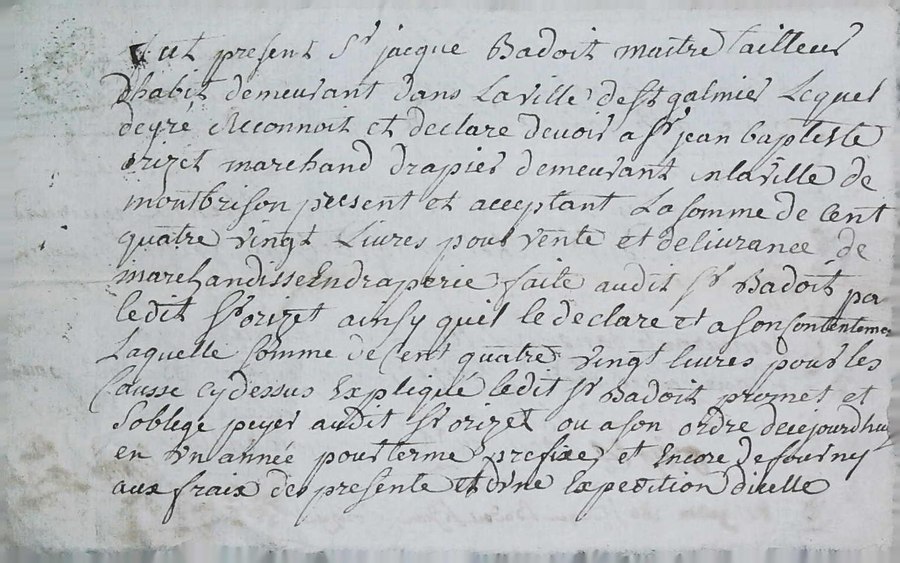 Fut present Sr jacque Badoit maitre tailleur
dhabit demeurant dans Laville de St galmier Lequel
degré Reconnoit et declare devoir a Sr jean baptiste
orizet marchand drapier demeurant enlaville de
montbrison present et acceptant La somme de Cent
quatre vingt Livres pour vente et delivrance de
marchandisse Endraperie faite audit Sr Badoit par
ledit Sr orizet ainsy quil le declare et a son Contenteme
Laquelle somme de Cent quatre vingt livres pour les
Causse cydessus Expliqué ledit Sr Badoit promet et
soblege peyer audit Sr orizet ou a son ordre decejourdhuy
en un année pour terme prefixe et Encore de fourny
aux fraix des presente et dune Expedition dicelle